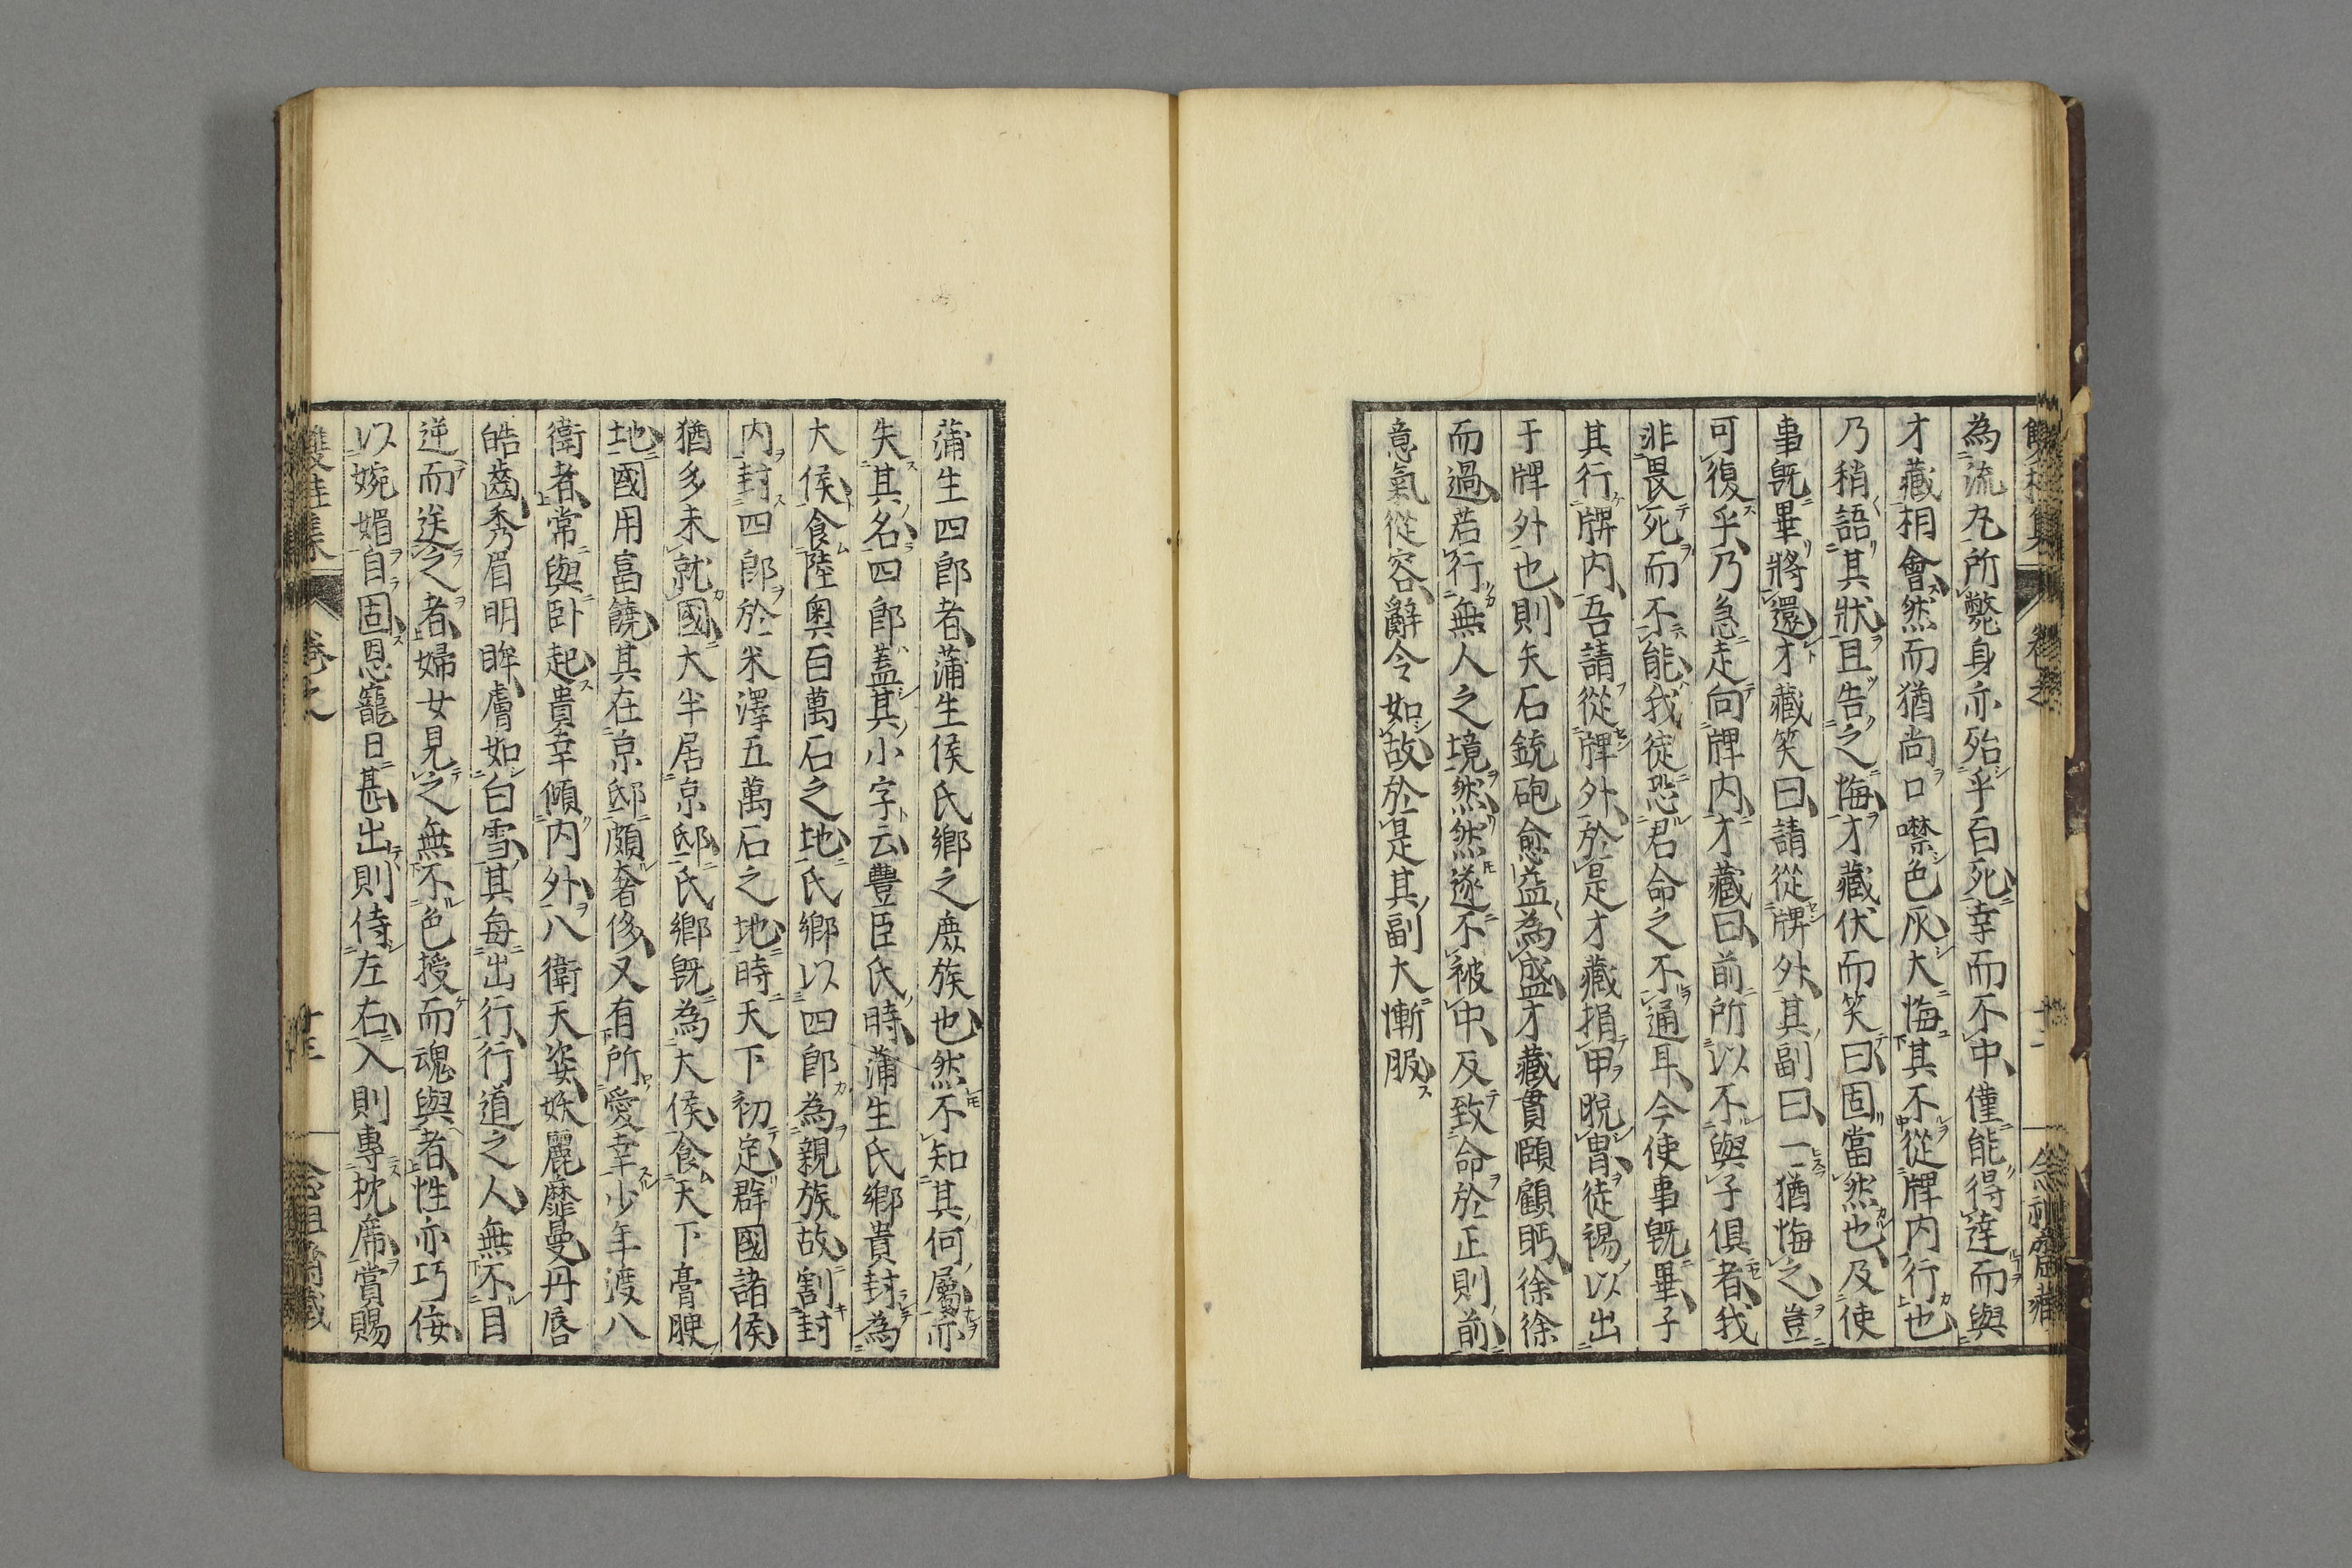 為流丸所斃身亦殆乎百死幸而不中僅能得達而與
才藏相會然而猶尚口噤色灰大悔其不從牌内行也
乃稍語其狀且告之悔才藏伏而笑曰固當然也及使
事既畢將還才藏笑曰請從牌外其副曰一猶悔之豈
可復乎乃急走向牌内才藏曰前所以不與子俱者我
非畏死而不能我徒恐君命之不通耳今使事既畢子
其行牌内吾請從牌外於是才藏捐甲脱冑徒裼以出
于牌外也則矢石銃砲愈益為盛才藏貫頤顧眄徐徐
而過若行無人之境然然遂不被中反致命於正則前
意氣從容辭令如故於是其副大慚服
蒲生四郎者蒲生侯氏鄉之庶族也然不知其何屬亦
失其名四郎蓋其小字云豐臣氏時蒲生氏鄉貴封為
大侯食陸奧百萬石之地氏鄉以四郎為親族故割封
内封四郎於米澤五萬石之地時天下初定群國諸侯
猶多未就國大半居京邸氏鄉既為大侯食天下膏腴
地國用富饒其在京邸頗奢侈又有所愛幸少年渡八
衛者常與臥起貴幸傾内外八衛天姿妖麗靡曼丹唇
皓齒秀眉明眸膚如白雪其每出行行道之人無不目
逆而送之者婦女見之無不色授而魂與者性亦巧佞
以婉媚自固恩寵日甚出則侍左右入則專枕席賞賜
卷之
十三